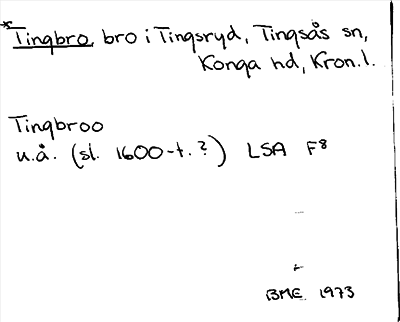 *Tingbro, bro i Tingsryd, Tingsås sn,
Konga hd, Kron.l.
Tingbroo
u.å. (sl. 1600-t.?) LSA F8
BME 1973